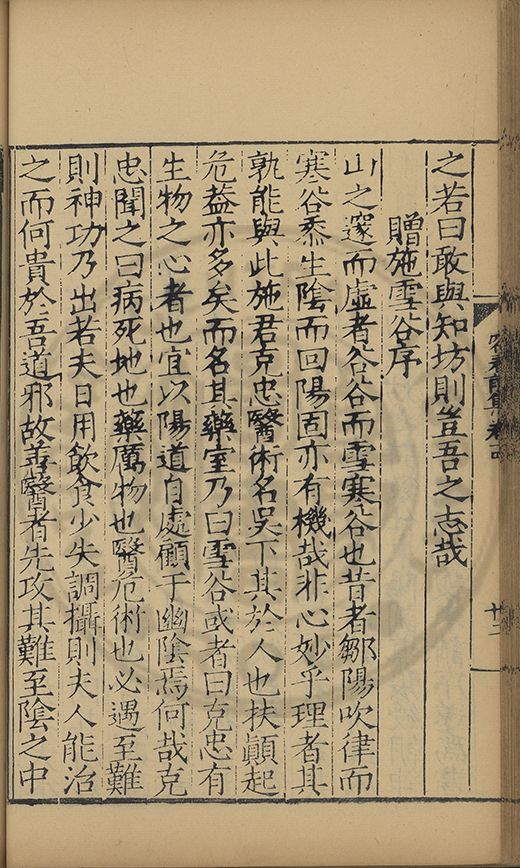 之若曰敢與知坊則豈吾之志哉
贈施雪谷序
山之邃而虛者谷谷而雪寒谷也昔者鄒陽吹律而
寒谷黍生陰而回陽固亦有機哉非心妙乎理者其
孰能與此施君克忠醫術名吳下其於人也扶顛起
危益亦多矣而名其藥室乃曰雪谷或者曰克忠有
生物之心者也宜以陽道自處顧于幽陰焉何哉克
忠聞之曰病死地也藥厲物也醫危術也必遇至難
則神功乃出若夫日用飲食少失調攝則夫人能治
之而何貴於吾道邪故善醫者先攻其難至陰之中
十二